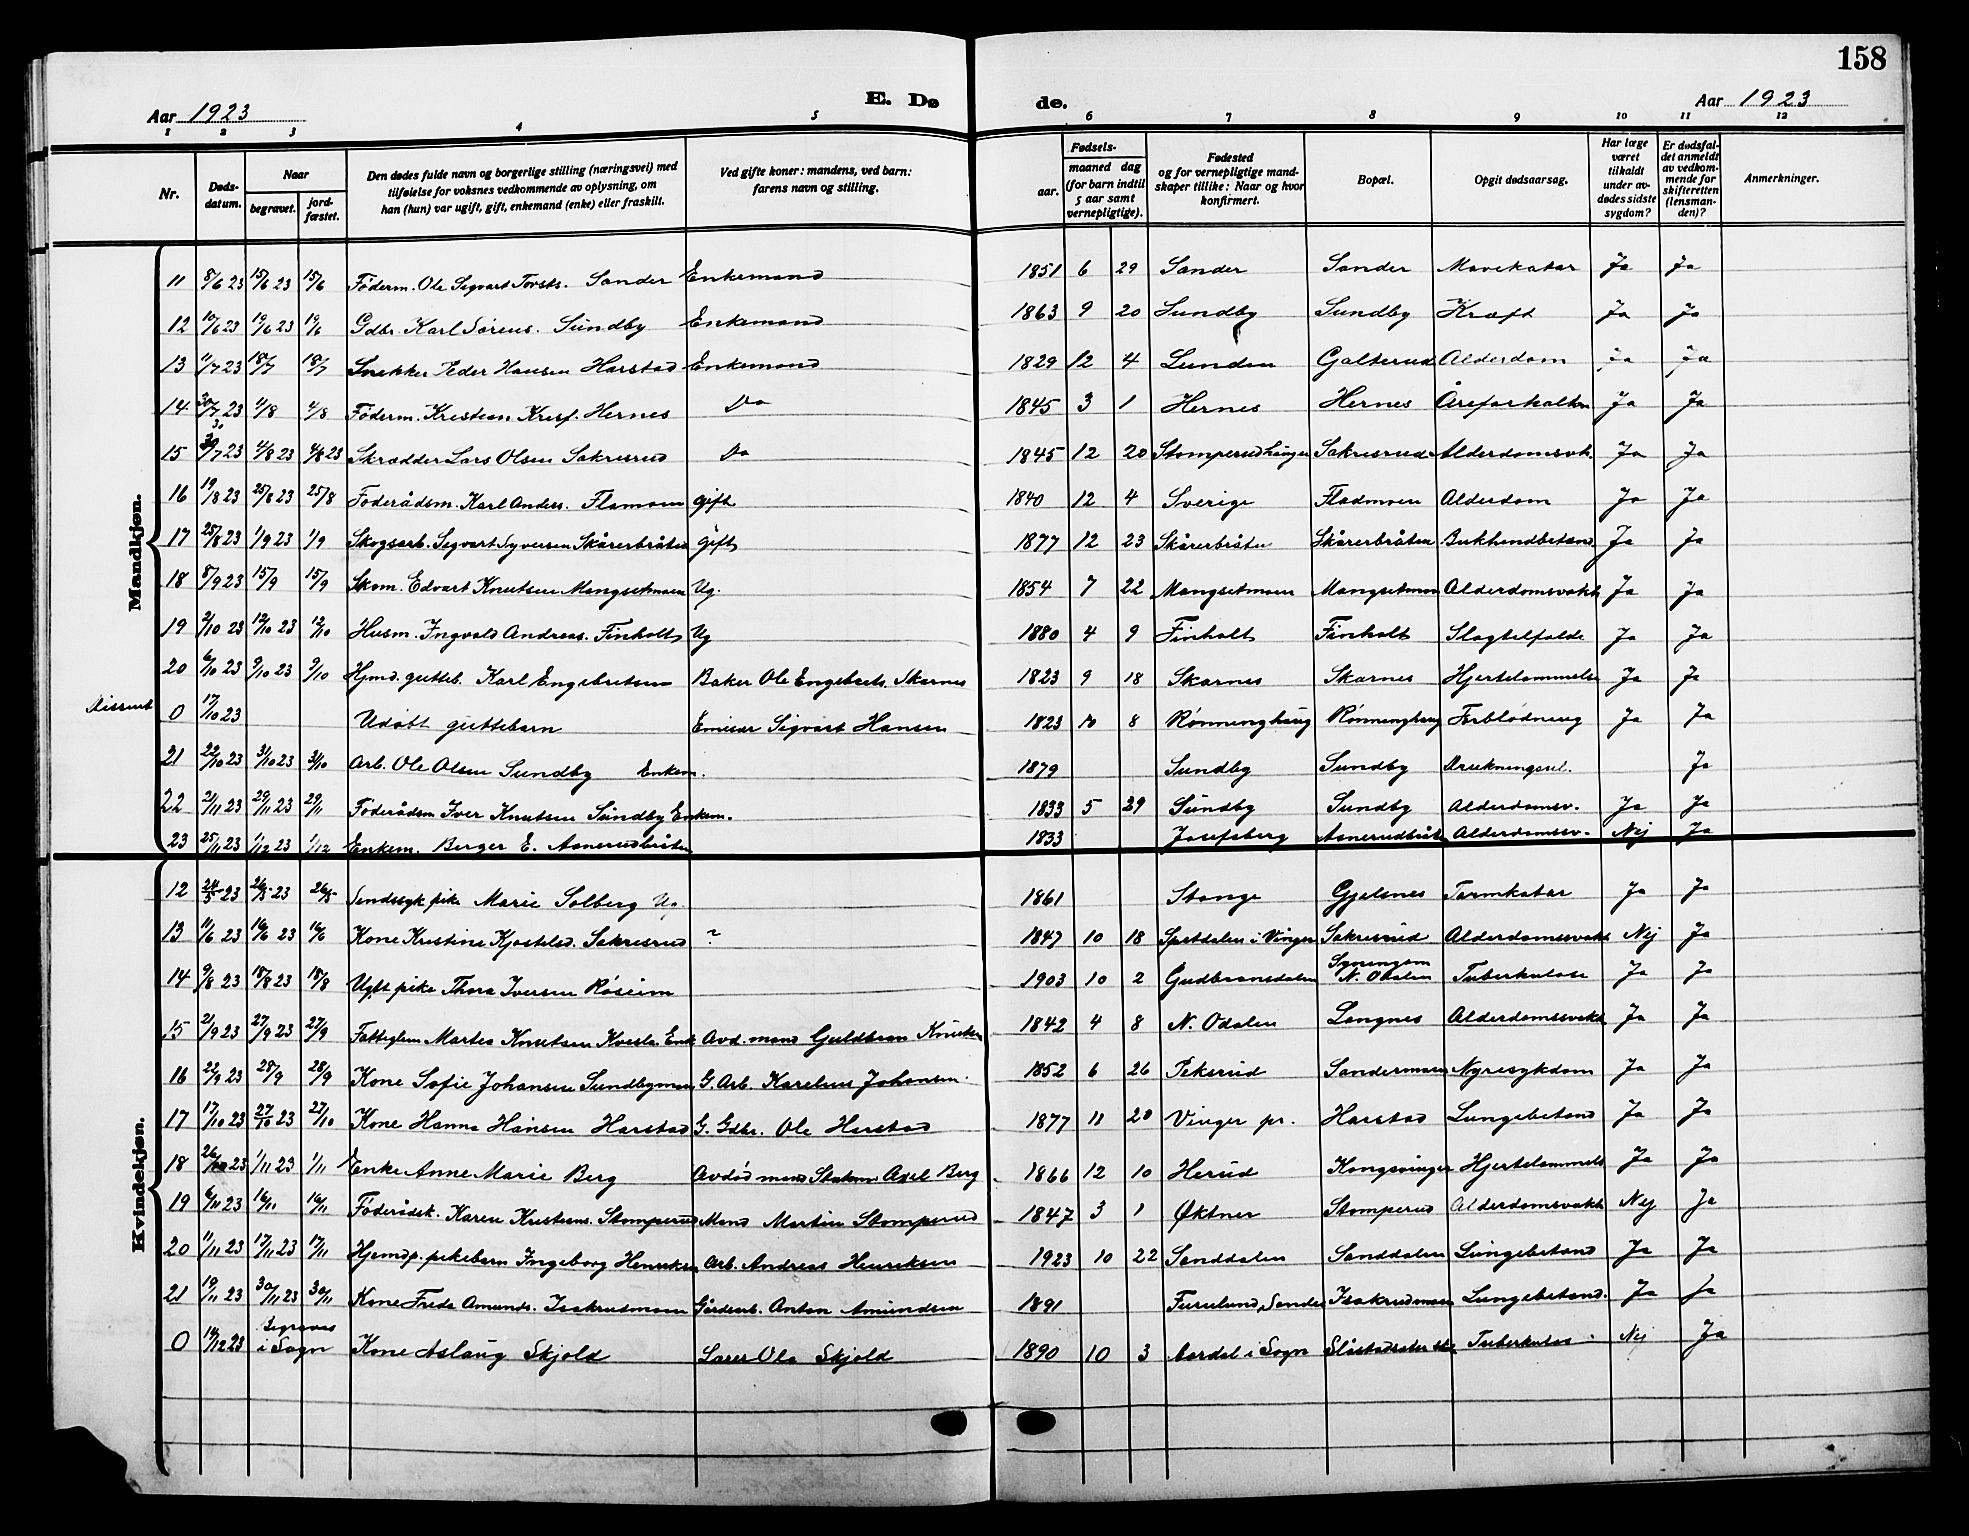 158
Aar 1923 E. Dø de. Aar 1923
1 2 3 4 5 6 7 8 9 10 11 12
Nr. Døds-datum. Naar begravet. jord-fæstet. Den dødes fulde navn og borgerlige stilling (næringsvei) med tilføielse for voksnes vedkommende av oplysning, om han (hun) var ugift, gift, enkemand (enke) eller fraskilt. Ved gifte koner: mandens, ved barn: farens navn og stilling. Fødsels- aar. maaned dag (for barn indtil 5 aar samt vernepligtige). Fødested og for vernepligtige mand-skaper tillike: Naar og hvor konfirmert. Bopæl. Opgit dødsaarsag. Har læge været tilkaldt under av-dødes sidste sygdom? Er dødsfal-det anmeldt av vedkom-mende for skifteretten (lensman-den)? Anmerkninger.
Mandkjøn.
11 8/6 23 15/6 23 15/6 Föderm. Ole Sigvart Torsts. Sander Enkemand 1851 6 29 Sander Sander Mavekatar Ja Ja
12 10/6 23 19/6 23 19/6 Gdbr. Karl Sörens. Sundby Enkemand 1863 9 20 Sundby Sundby Kræft Ja Ja
13 11/7 23 18/7 18/7 Snekker Peder Hansen Harstad Enkemand 1829 12 4 Lunden Galterud Alderdom Ja Ja
14 30/7 23 4/8 4/8 Föderm. Kristian Krisf. Hernes Do 1845 3 1 Hernes Hernes Åreforkalkn Ja Ja
15 30/7 23 4/8 23 4/8 23 Skrædder Lars Olsen Sakrisrud Do 1845 12 20 Stomperud Sakrisrud Alderdomsvk. Ja Ja
16 19/8 23 25/8 23 25/8 Föderådsm. Karl Anders. Flamoen gift 1840 12 4 Sverige Fladmoen Alderdom Ja Ja
17 25/8 23 1/9 23 1/9 Skogsarb. Sigvart Syversen Skårerbråten gift 1877 12 23 Skårerbråten Skårerbråten Bukhindbetænd Ja Ja
18 8/9 23 15/9 15/9 Skom. Edvart Knutsen Mangsetmoen Ug. 1854 7 22 Mangsetmoen Mangsetmoen Alderdomsvakh Ja Ja
19 2/10 23 12/10 23 12/10 Husm. Ingvald Andreas. Finholt Ug 1880 4 9 Finholt Finholt Slagtilfælde Ja Ja
20 6/10 23 9/10 23 9/10 Hjmd. gutteb. Karl Engebretsen Baker Ole Engebrets. Skarnes 1823 9 18 Skarnes Skarnes Hjertelammelse Ja Ja
Dissent 0 17/10 23 Udøbt guttebarn Emisær Sigvart Hansen 1823 10 8 Rønninghaug Rønninghaug Forblødning Ja Ja
21 22/10 23 31/10 23 31/10 Arb. Ole Olsen Sundby Enkem. 1879 Sundby Sundby Drukningsul. Ja
22 21/11 23 29/11 23 29/11 Föderådsm Iver Knutsen Sundby Enkem. 1833 5 29 Sundby Sundby Alderdomsv. Ja Ja
23 25/11 23 1/12 23 1/12 Enkem. Berger E. Asnerudbråten 1833 Josefsberg Asnerudbråt Alderdomssv. Nej Ja
Kvindekjøn.
12 24/5 23 26/5 23 26/5 Sindssyk pike Marie Solberg Ug. 1861 Stange Gjelsnes Tarmkatar Ja Ja
13 11/6 23 16/6 23 16/6 Kone Kristine Kjostelsd. Sakrisrud ? 1847 10 18 i Vinger Sakrisrud Alderdomssvakh Nej Ja
14 9/8 23 18/8 23 18/8 Ugft pike Thora Iversen Røseim 1903 10 2 Gudbransdalen N. Odalen Tuberkulose Ja Ja
15 21/9 23 27/9 23 27/9 Fattiglem Martea Knutsen Enk Avd. mand Guldbran Knutsen 1842 4 8 N. Odalen Langnes Alderdomssvakh Ja Ja
16 22/9 23 28/9 28/9 Kone Sofie Johansen Sundbymoen G. Arb. Karelius Johansen 1852 6 26 Peksrud Sandermoen Nyresykdom Ja Ja
17 17/10 23 27/10 23 27/10 Kone Hanna Hansen Harstad G. Gdbr. Ole Harstad 1877 11 20 Vinger pr. Harstad Lungebetænd Ja Ja
18 26/10 23 1/11 23 1/11 Enke Anne Marie Berg Avdød mand Axel Berg 1866 12 10 Herud Kongsvinger Hjertelammels Ja Ja
19 6/11 23 16/11 16/11 Föderådsk. Karen Kristians. Stomperud Mand Martin Stomperud 1847 3 1 Øktner Stomperud Alderdomsvakh Nej Ja
20 11/11 23 17/11 23 17/11 Hjemdp. pikebarn Ingeborg Henriksen Arb. Andreas Henriksen 1923 10 22 Sanddalen Sanddalen Lungebetænd Ja Ja
21 19/11 23 30/11 23 30/11 Kone Frida Amunds. Isakrudmoen Gårdarb. Anton Amundsen 1891 Furulund, Sander Isakrudmoen Lungebetænd. Ja Ja
0 14/12 23 Begraves i Sogn Kone Aslaug Skjold Lærer Ola Skjold 1890 10 3 Aardal i Sogn Tuberkulos Nej Ja